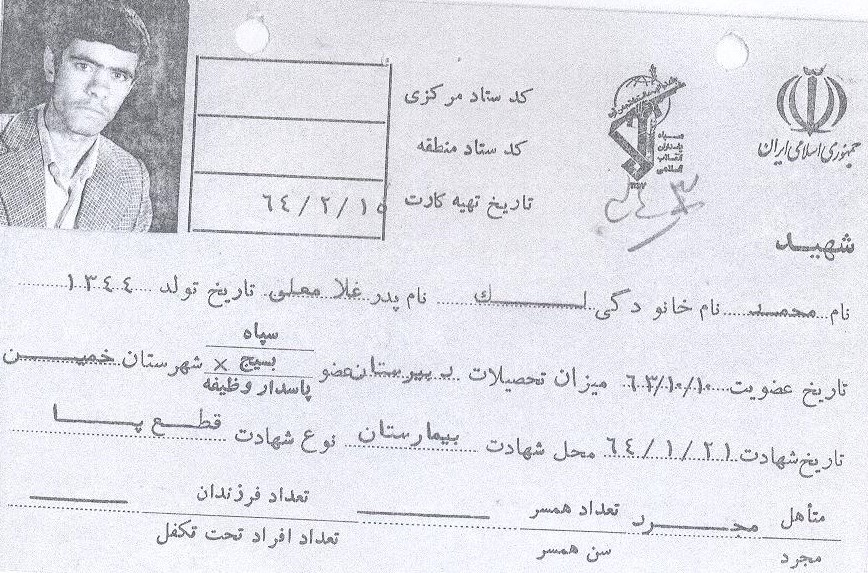 جمهوری اسلامی ایران
سپاه پاسداران انقلاب اسلامی
کد ستاد مرکزی
کد ستاد منطقه
تاریخ تهیه کارت ٦٤/٢/١٥
شهید
نام محمد نام خانوادگی لک نام پدر غلامعلی تاریخ تولد ١٣٤٤
تاریخ عضویت ٦٣/١٠/١٠ میزان تحصیلات دبیرستان عضو سپاه بسیج × پاسدار وظیفه شهرستان خمین
تاریخ شهادت ٦٤/١/٢١ محل شهادت بیمارستان نوع شهادت قطع پا
متأهل مجرد تعداد همسر تعداد فرزندان
مجرد سن همسر تعداد افراد تحت تکفل